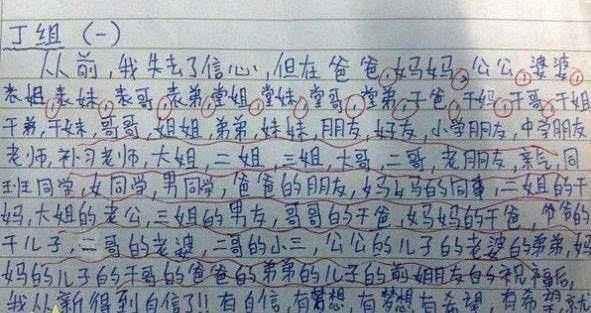 丁组 (一)
从前,我失去了信心,但在爸爸,妈妈,公公,婆婆
表姐,表妹,表哥,表弟,堂姐,堂妹,堂哥,堂弟,干爸,干妈,干哥,干姐
干弟,干妹,哥哥,姐姐,弟弟,妹妹,朋友,好友,小学朋友,中学朋友
老师,补习老师,大姐,二姐,三姐,大哥,二哥,老朋友,亲戚,同
班同学,女同学,男同学,爸爸的朋友,妈妈的同事,二姐的干
妈,大姐的老公,三姐的男友,哥哥的干爸,妈妈的干爸,爷爷的
干儿子,二哥的老婆,二哥的小三,公公的儿子的老婆的弟弟,妈
妈的儿子的干哥的爸爸的弟弟的儿子的前女朋友的祝福后,
我从新得到自信了!! 有自信,有梦想,有梦想有希望,有希望,就